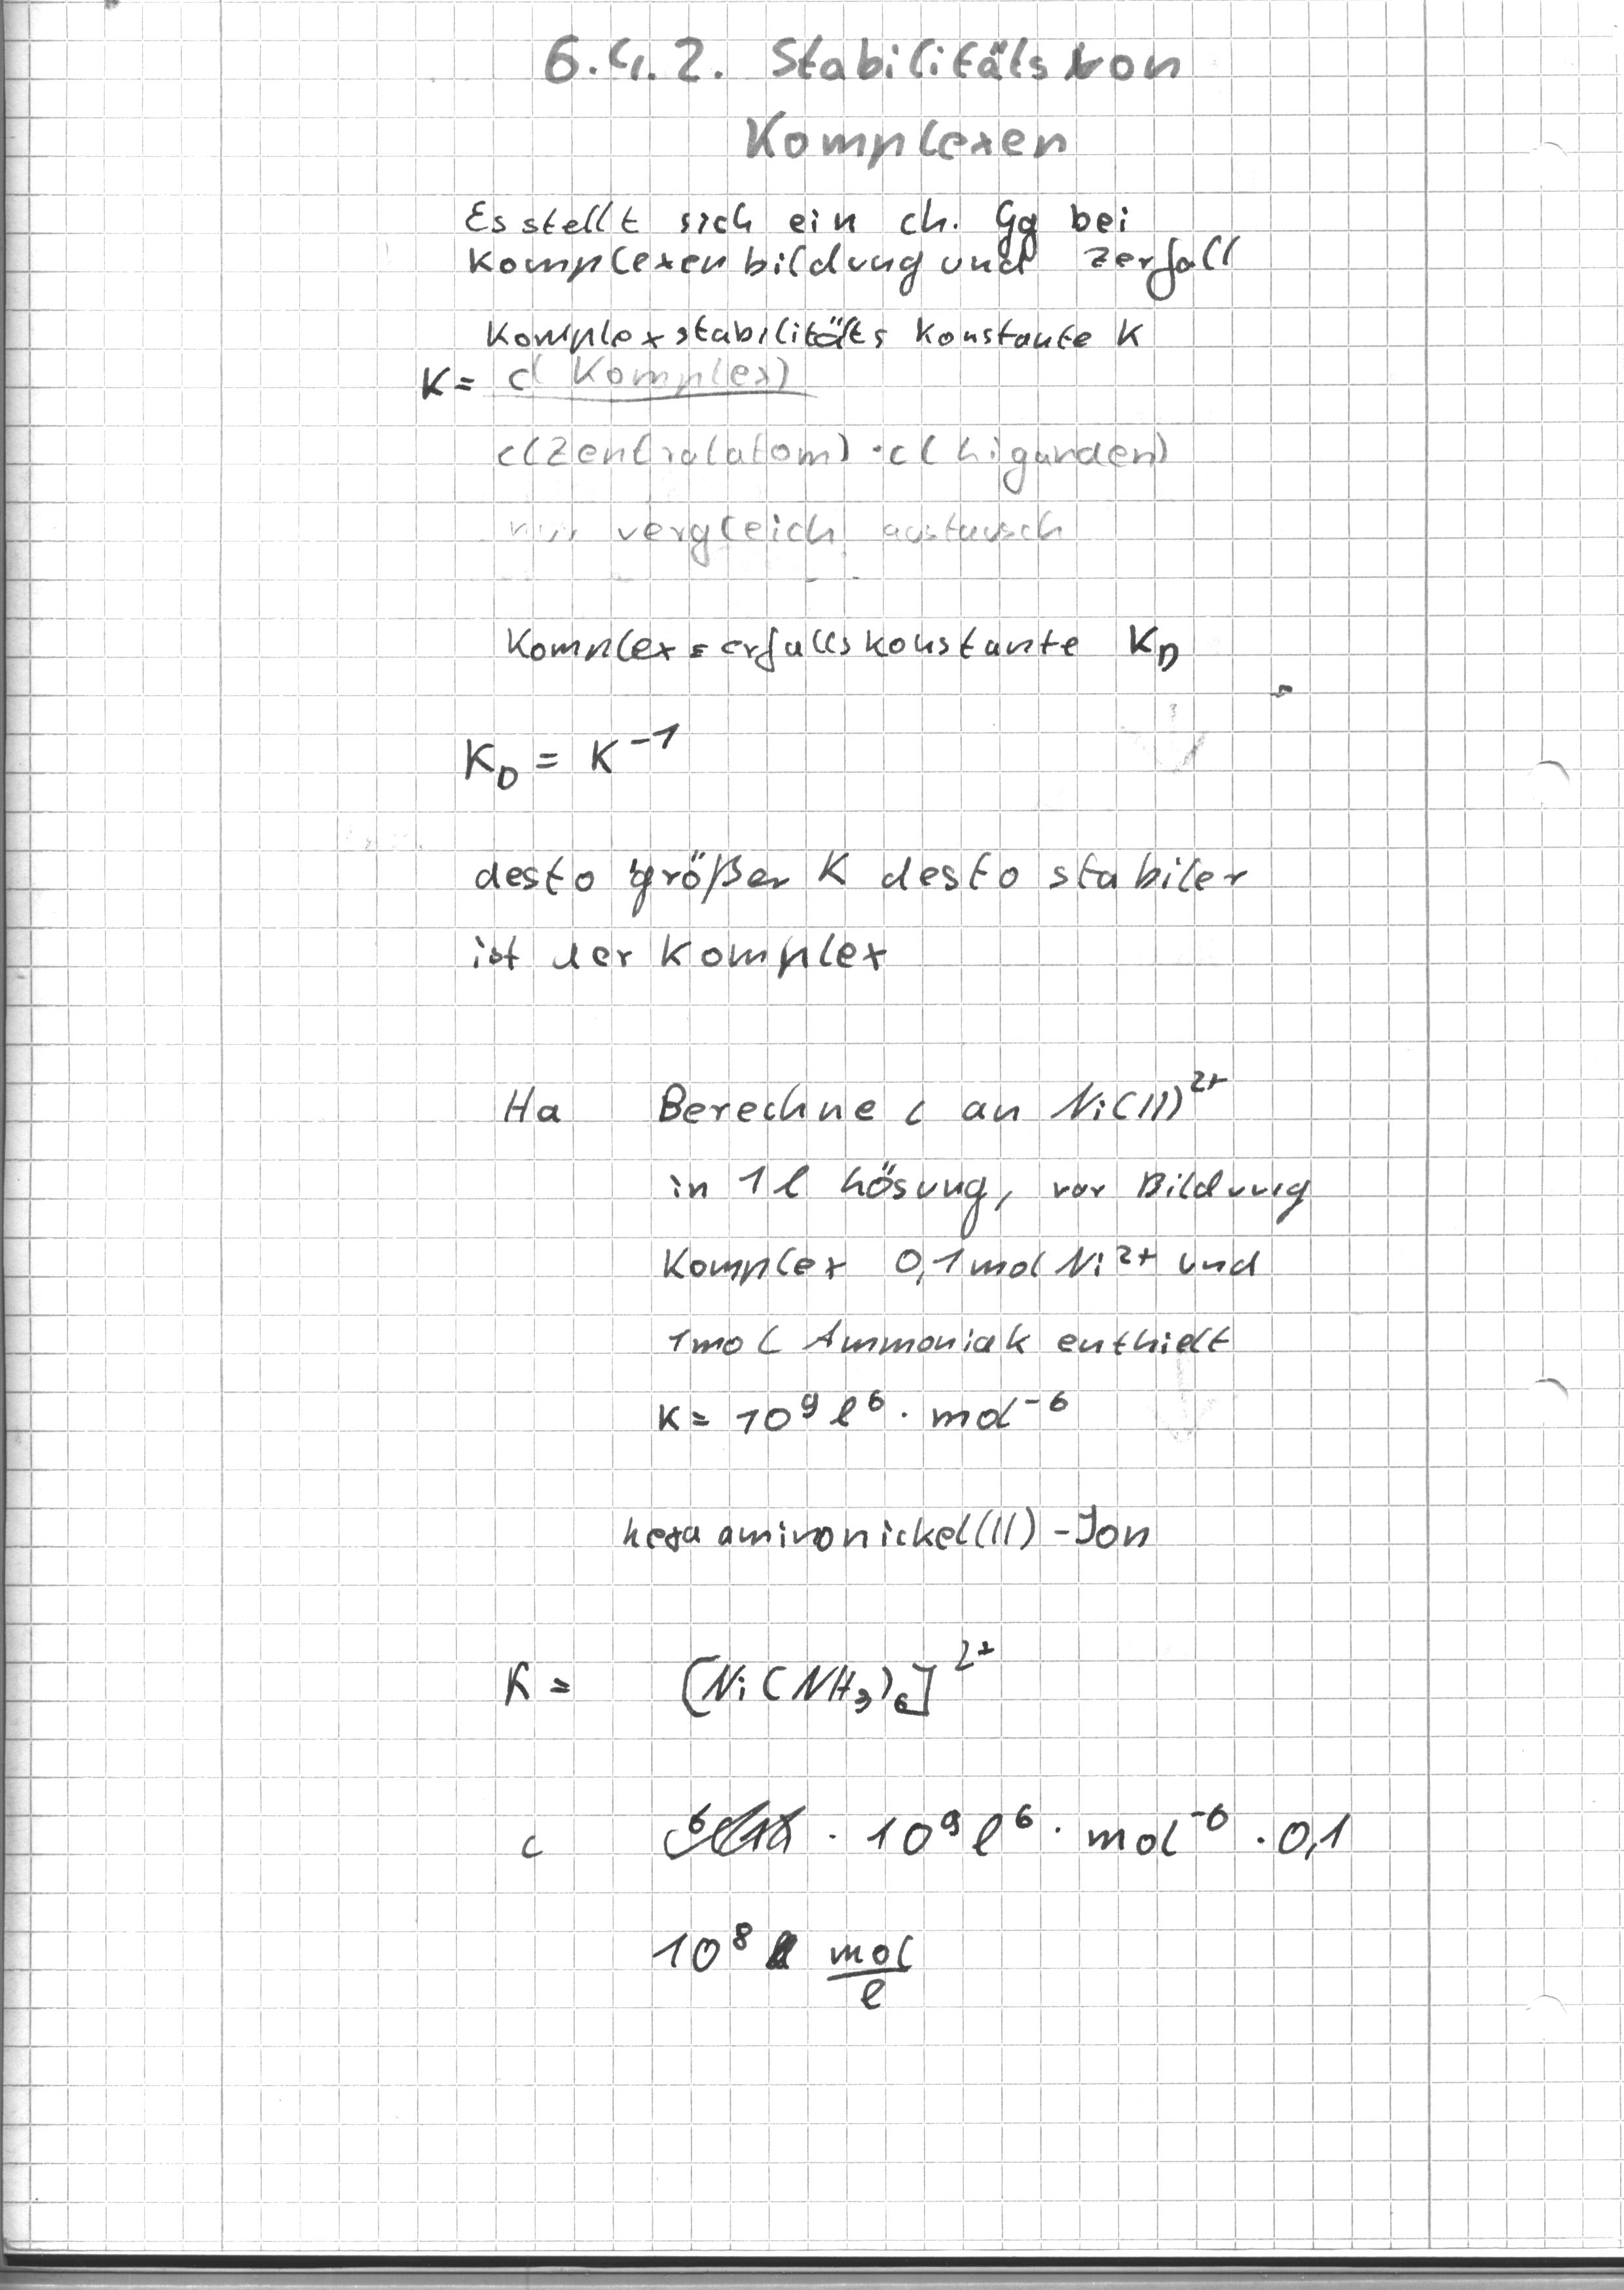 6.4.2. Stabilitäts von
Komplexen
Es stellt sich ein ch. Gg bei
Komplexenbildung und Zerfall
Komplexstabilitäts Konstante K
K = c(Komplex)
c(Zentralatom) · c(Liganden)
vergleich austausch
Komplexzerfallskonstante K_D
K_D = K^-1
desto größer K desto stabiler
ist der Komplex
Ha Berechne c an Ni(II)^2+
in 1 l Lösung, vor Bildung
Komplex 0,1 mol Ni^2+ und
1 mol Ammoniak enthielt
K = 10^9 l^6 · mol^-6
hexaaminonickel(II)-Ion
K = [Ni(NH3)6]^2+
c · 10^9 l^6 · mol^-6 · 0,1
10^8 mol/l